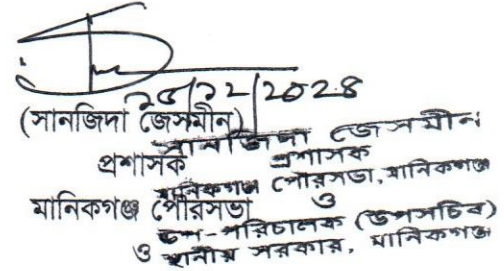 (সানজিদা জেসমীন)
প্রশাসক
মানিকগঞ্জ পৌরসভা
সানজিদা জেসমীন
প্রশাসক
মানিকগঞ্জ পৌরসভা, মানিকগঞ্জ
ও
উপ-পরিচালক (উপসচিব)
ও স্থানীয় সরকার, মানিকগঞ্জ